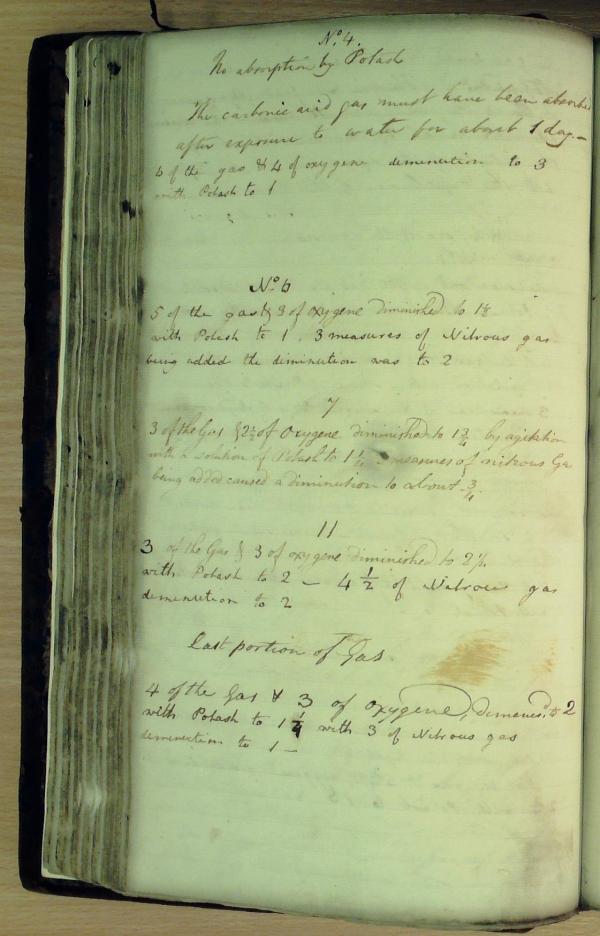 No. 4.
No absorption by Potash
The carbonic acid gas must have been absorbed
after exposure to water for about 1 day. —
6 of the gas & 4 of oxygene deminution to 3
with Potash to 1
No. 6
5 of the gas & 3 of oxygene diminished to
with Potash to 1. 3 measures of Nitrous gas
being added the diminution was to 2
7
3 of the Gas & 2½ of Oxygene diminished to 1¾ by agitation
with a solution of Potash to 1¼ measures of nitrous Gas
being added caused a diminution to about ¾.
11
3 of the Gas & 3 of oxygene diminished to
with Potash to 2 — 4½ of Nitrous gas
deminution to 2
last portion of Gas.
4 of the Gas & 3 of oxygene, to 2
with Potash to 1¼ with 3 of Nitrous gas
deminution to 1 —